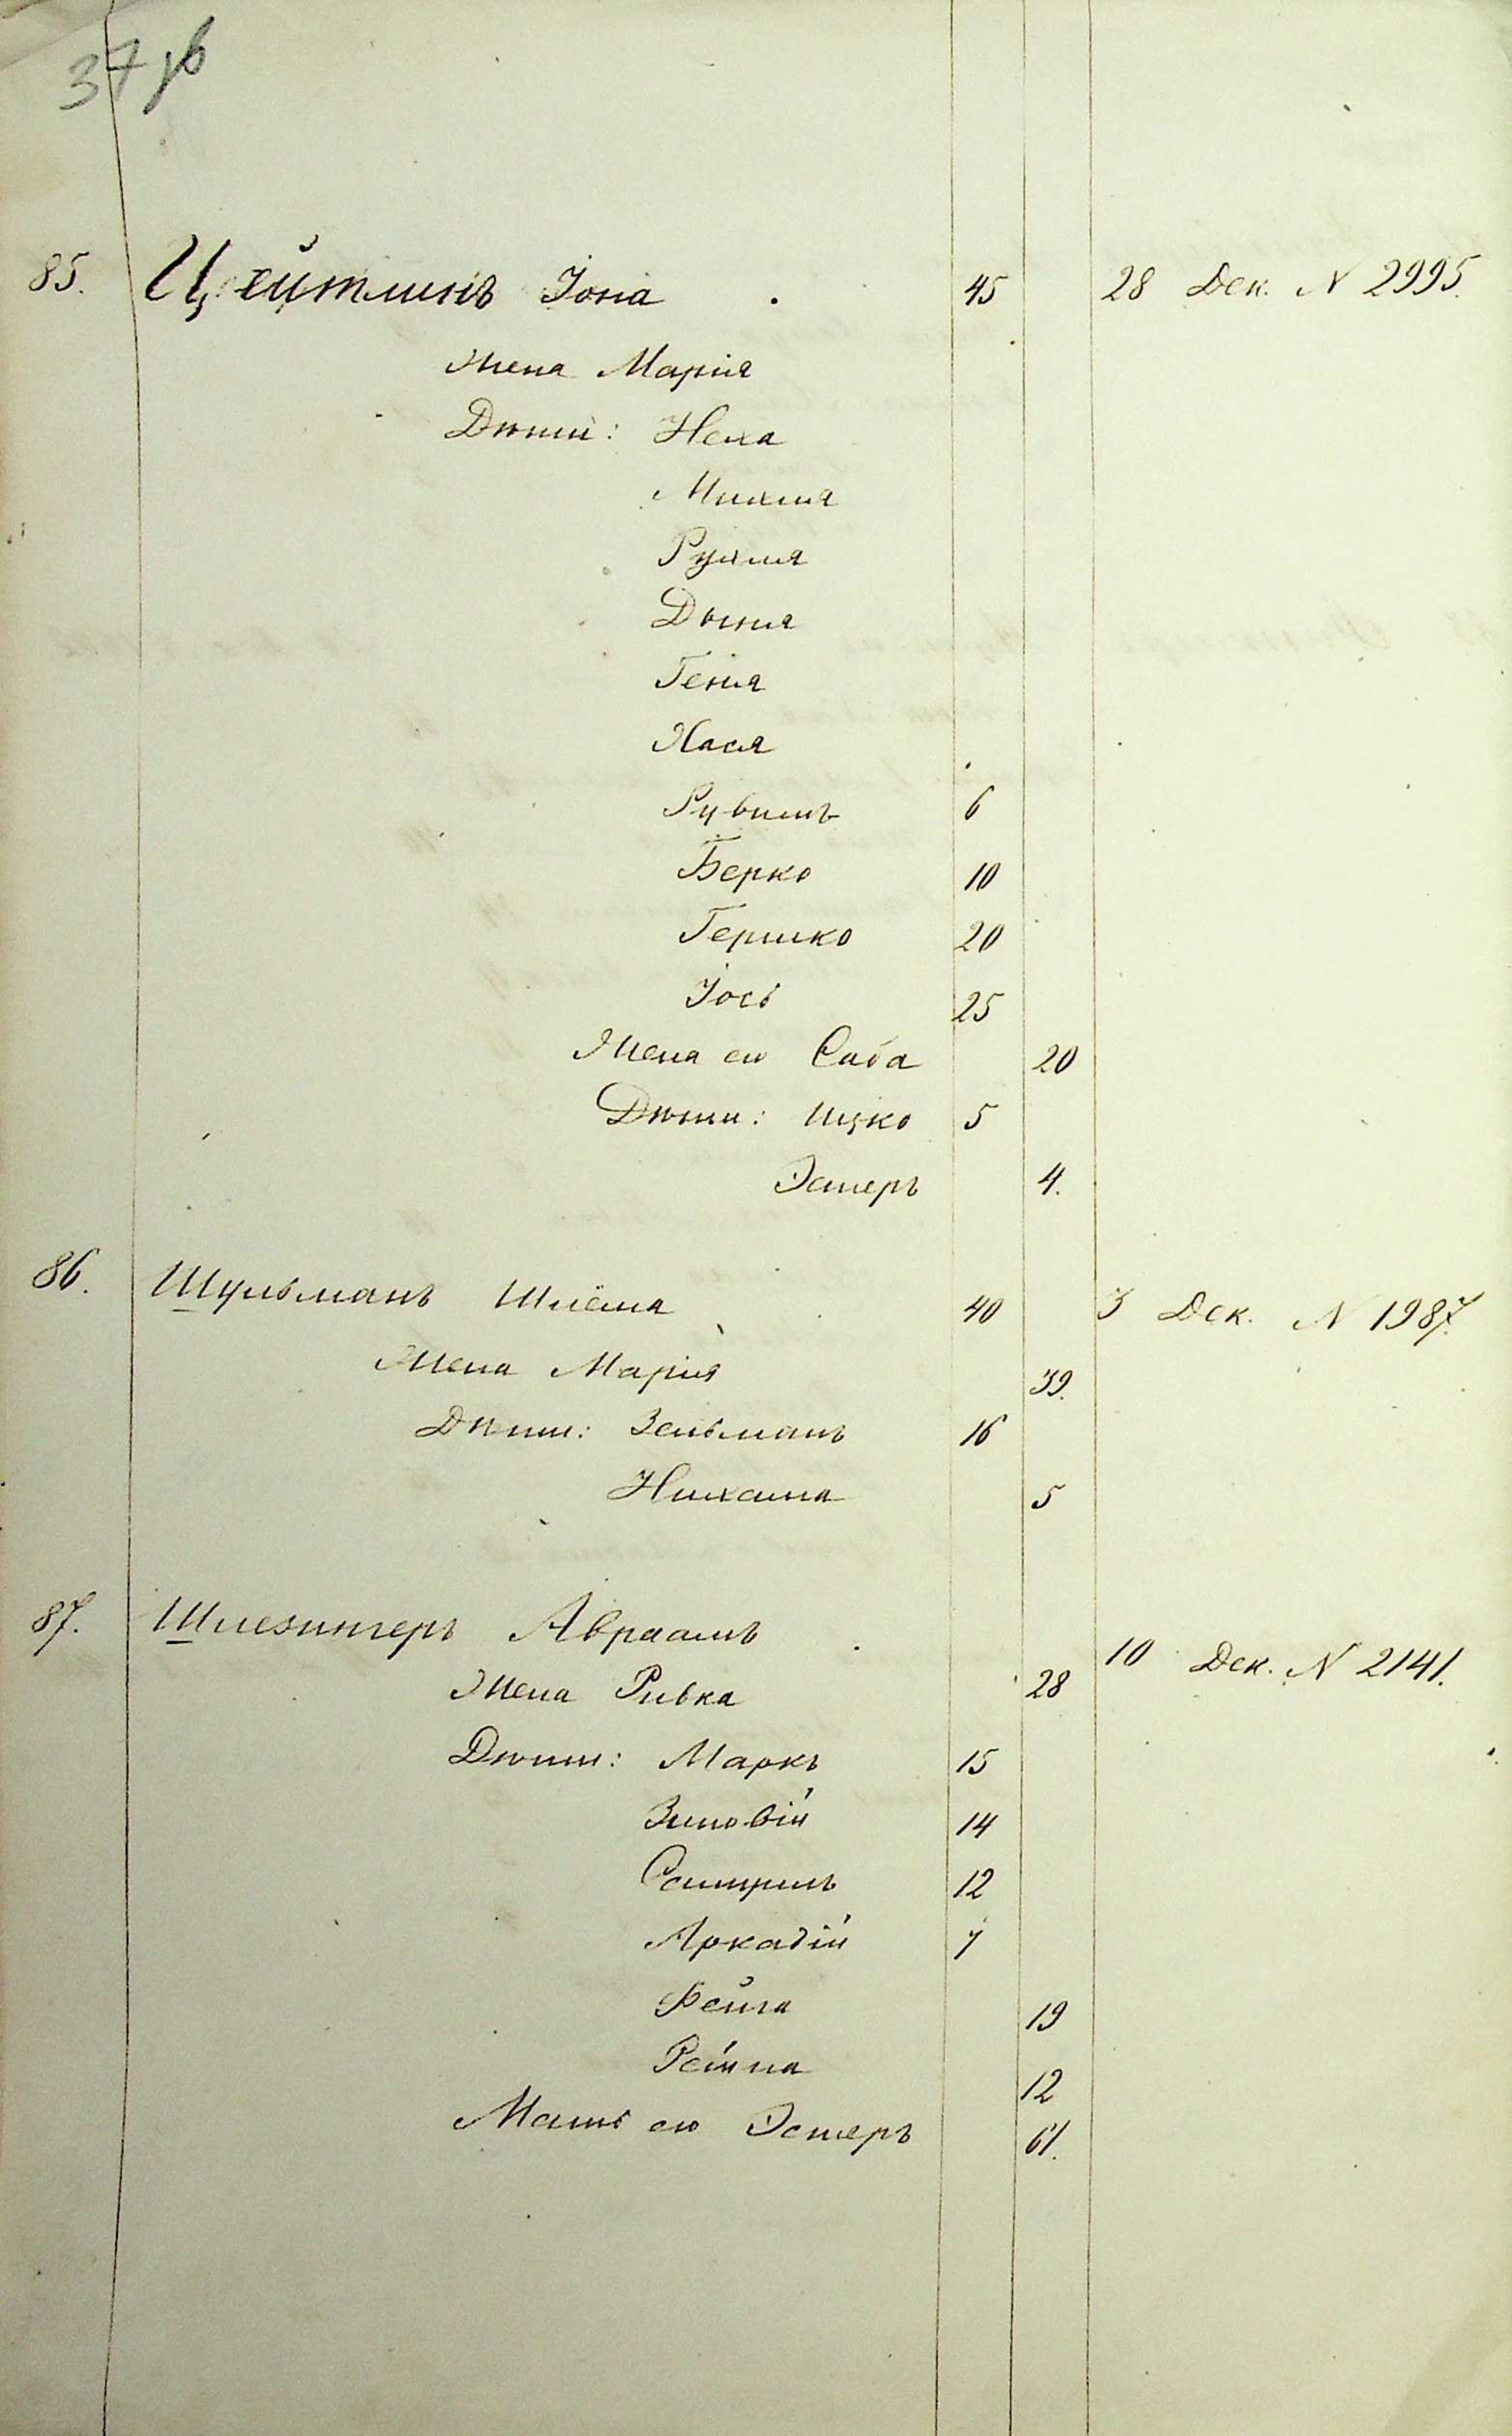 37 об
85. Цейтлинъ Іона 45 28 Дек. N 2995.
Жена Марія
Дѣти: Неха
Михля
Рухля
Дыня
Геня
Хася
Рувимъ 6
Берко 10
Гершко 20
Іось 25
Жена его Сиба 20
Дѣти: Ицко 5
Эстеръ 4.
86. Шульманъ Шлёма 40 3 Дек. N 1987.
Жена Марія 39.
Дѣти: Зельманъ 16
Нихама 5
87. Шлезингеръ Авраамъ 10 Дек. N 2141.
Жена Ривка 28
Дѣти: Маркъ 15
Зиновій 14
Самуилъ 12
Аркадій 7
Фейга 19
Рейна 12
Мать его Эстеръ 61.